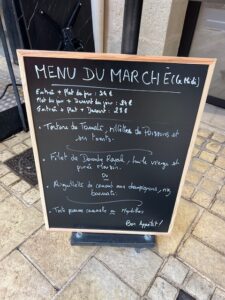 MENU DU MARCHÉ (Le Midi)
Entrée + Plat du jour : 24€
Plat du jour + Dessert du jour : 24€
Entrée + Plat + Dessert : 28€
- Tartare de Tomate, rillettes de Poissons et
- Filet de Daurade Royale, sauce vierge et
purée Maison.
OU
- Aiguillette de canard aux champignons, riz
basmati.
- Tarte pomme cannelle ou
Bon Appétit !